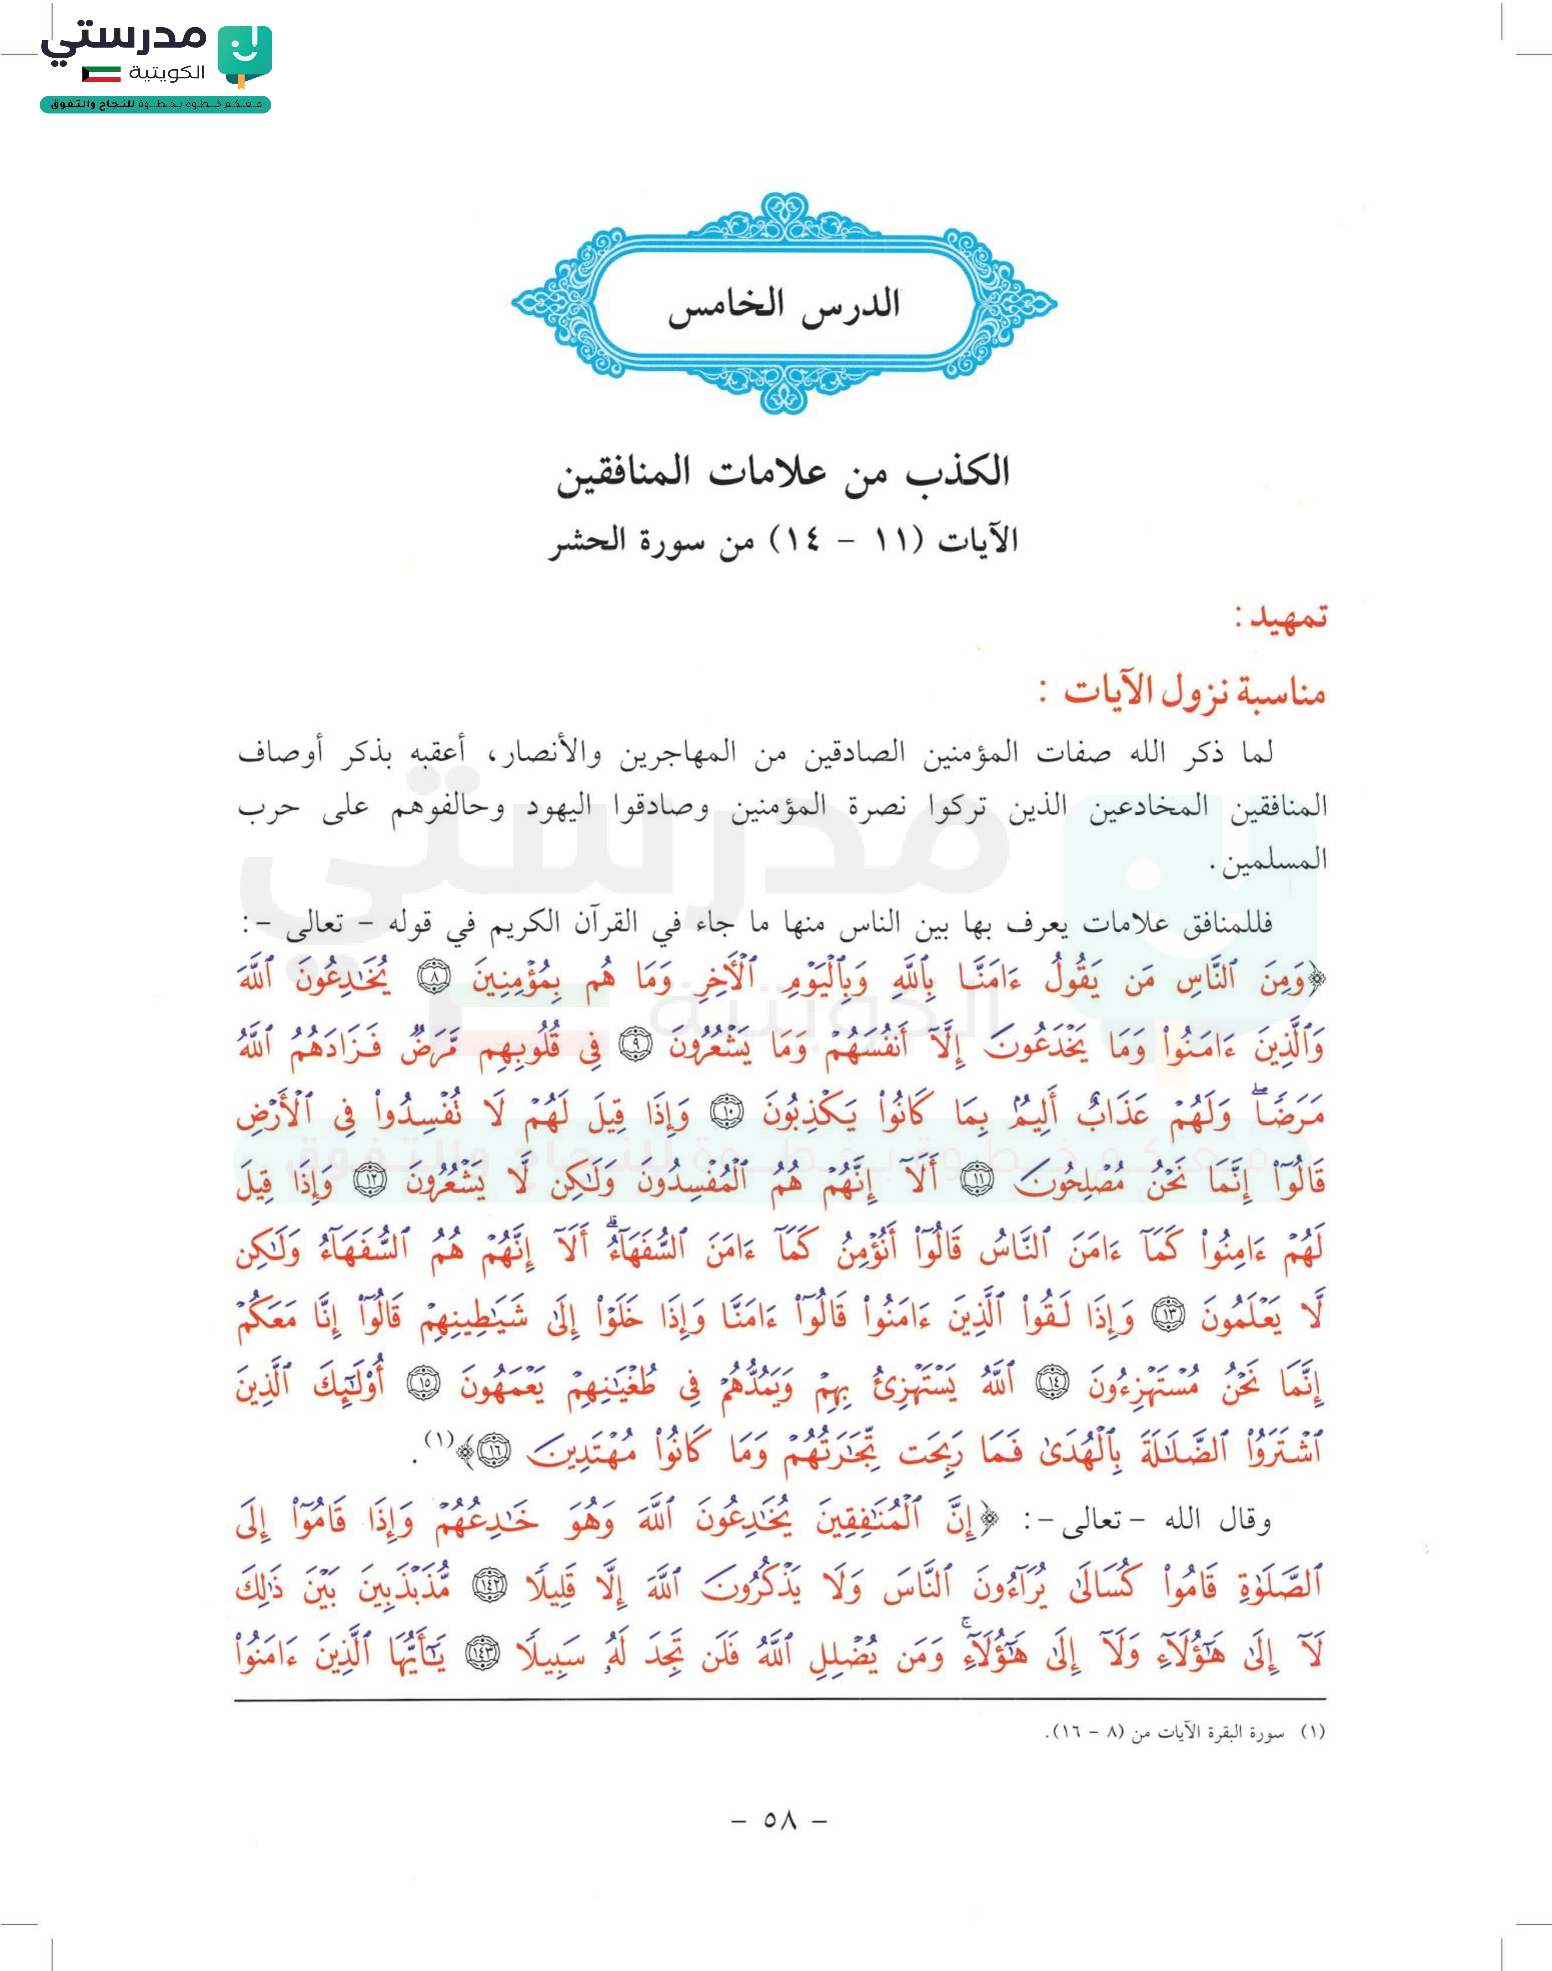 مدرستي
الكويتية
معكم خطوة بخطوة للنجاح والتفوق
الدرس الخامس
الكذب من علامات المنافقين
الآيات (١١ – ١٤) من سورة الحشر
تمهيد :
مناسبة نزول الآيات :
لما ذكر الله صفات المؤمنين الصادقين من المهاجرين والأنصار، أعقبه بذكر أوصاف
المنافقين المخادعين الذين تركوا نصرة المؤمنين وصادقوا اليهود وحالفوهم على حرب
المسلمين.
فللمنافق علامات يعرف بها بين الناس منها ما جاء في القرآن الكريم في قوله – تعالى –:
﴿وَمِنَ ٱلنَّاسِ مَن يَقُولُ ءَامَنَّا بِٱللَّهِ وَبِٱلْيَوْمِ ٱلْأَخِرِ وَمَا هُم بِمُؤْمِنِينَ ٨ يُخَـٰدِعُونَ ٱللَّهَ
وَٱلَّذِينَ ءَامَنُوا۟ وَمَا يَخْدَعُونَ إِلَّآ أَنفُسَهُمْ وَمَا يَشْعُرُونَ ٩ فِى قُلُوبِهِم مَّرَضٌ فَزَادَهُمُ ٱللَّهُ
مَرَضًا ۖ وَلَهُمْ عَذَابٌ أَلِيمٌۢ بِمَا كَانُوا۟ يَكْذِبُونَ ١٠ وَإِذَا قِيلَ لَهُمْ لَا تُفْسِدُوا۟ فِى ٱلْأَرْضِ
قَالُوٓا۟ إِنَّمَا نَحْنُ مُصْلِحُونَ ١١ أَلَآ إِنَّهُمْ هُمُ ٱلْمُفْسِدُونَ وَلَـٰكِن لَّا يَشْعُرُونَ ١٢ وَإِذَا قِيلَ
لَهُمْ ءَامِنُوا۟ كَمَآ ءَامَنَ ٱلنَّاسُ قَالُوٓا۟ أَنُؤْمِنُ كَمَآ ءَامَنَ ٱلسُّفَهَآءُ ۗ أَلَآ إِنَّهُمْ هُمُ ٱلسُّفَهَآءُ وَلَـٰكِن
لَّا يَعْلَمُونَ ١٣ وَإِذَا لَقُوا۟ ٱلَّذِينَ ءَامَنُوا۟ قَالُوٓا۟ ءَامَنَّا وَإِذَا خَلَوْا۟ إِلَىٰ شَيَـٰطِينِهِمْ قَالُوٓا۟ إِنَّا مَعَكُمْ
إِنَّمَا نَحْنُ مُسْتَهْزِءُونَ ١٤ ٱللَّهُ يَسْتَهْزِئُ بِهِمْ وَيَمُدُّهُمْ فِى طُغْيَـٰنِهِمْ يَعْمَهُونَ ١٥ أُو۟لَـٰٓئِكَ ٱلَّذِينَ
ٱشْتَرَوُا۟ ٱلضَّلَـٰلَةَ بِٱلْهُدَىٰ فَمَا رَبِحَت تِّجَـٰرَتُهُمْ وَمَا كَانُوا۟ مُهْتَدِينَ ١٦﴾(١).
وقال الله – تعالى –: ﴿إِنَّ ٱلْمُنَـٰفِقِينَ يُخَـٰدِعُونَ ٱللَّهَ وَهُوَ خَـٰدِعُهُمْ وَإِذَا قَامُوٓا۟ إِلَى
ٱلصَّلَوٰةِ قَامُوا۟ كُسَالَىٰ يُرَآءُونَ ٱلنَّاسَ وَلَا يَذْكُرُونَ ٱللَّهَ إِلَّا قَلِيلًا ١٤٢ مُّذَبْذَبِينَ بَيْنَ ذَٰلِكَ
لَآ إِلَىٰ هَـٰٓؤُلَآءِ وَلَآ إِلَىٰ هَـٰٓؤُلَآءِ ۚ وَمَن يُضْلِلِ ٱللَّهُ فَلَن تَجِدَ لَهُۥ سَبِيلًا ١٤٣ يَـٰٓأَيُّهَا ٱلَّذِينَ ءَامَنُوا۟
(١) سورة البقرة الآيات من (٨ – ١٦).
– ٥٨ –